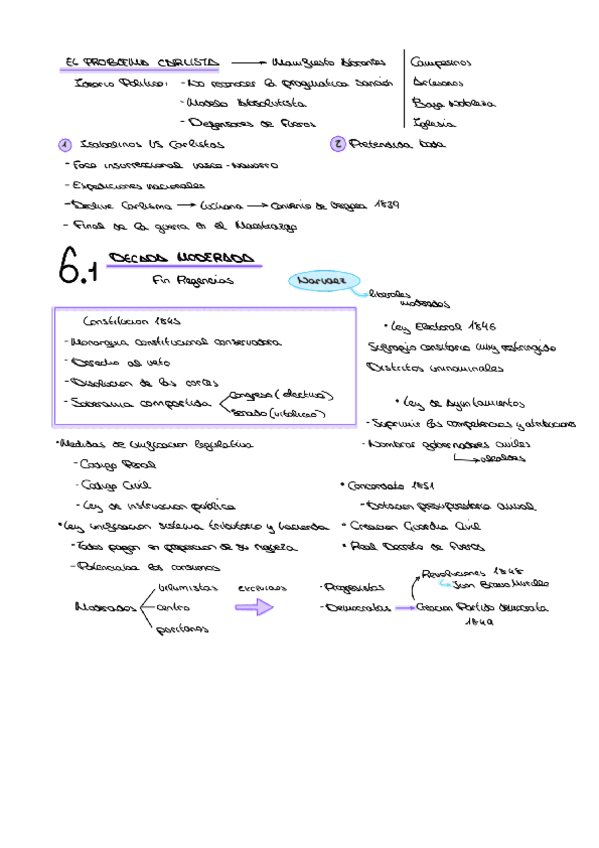 EL PROBLEMA CARLISTA → Manifiesto Abrantes
Campesinos
Ideario Político: - No reconocer la pragmatica sanción
Artesanos
- Modelo Absolutista
Baja Nobleza
- Defensores de Fueros
Iglesia
1 Isabelinos VS Carlistas
2 Pretendida boda
- Foco insurreccional vasco-navarro
- Expediciones nacionales
- Declive Carlismo → Luchana → Convenio de Vergara 1839
- Final de la guerra en el Maestrazgo
6.1 DECADA MODERADA
Fin Regencias
Narvaez
liberales
moderados
Constitucion 1845
- Monarquia constitucional conservadora
- Derecho al veto
- Disolucion de las cortes
- Soberania compartida
Congreso (electivo)
Senado (vitalicio)
• Ley Electoral 1846
Sufragio censitario muy restringido
Distritos uninominales
• Ley de Ayuntamientos
- Suprimir las competencias y atribuciones
- Nombrar gobernadores civiles
→ alcaldes
• Medidas de unificacion legislativa
- Codigo Penal
- Codigo Civil
- Ley de instruccion pública
• Concordato 1851
- Dotacion presupuestaria anual
• Ley unificacion sistema tributario y hacienda
• Creacion Guardia Civil
- Todos pagan en proporcion de su riqueza
• Real Decreto de Fueros
- Potenciaba los consumos
Moderados
vilumistas
centro
puritanos
excluidos
- Progresistas
- Democratas → Creacion Partido democrata
1849
Revoluciones 1848
Juan Bravo Murillo